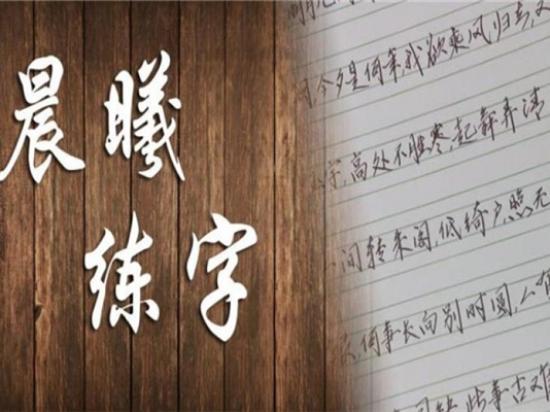 晨曦
练字
今夕是何年我欲乘风归去,又
宇,高处不胜寒,起舞弄清
间转朱阁,低绮户,照无
何事长向别时圆,人有
此事古难